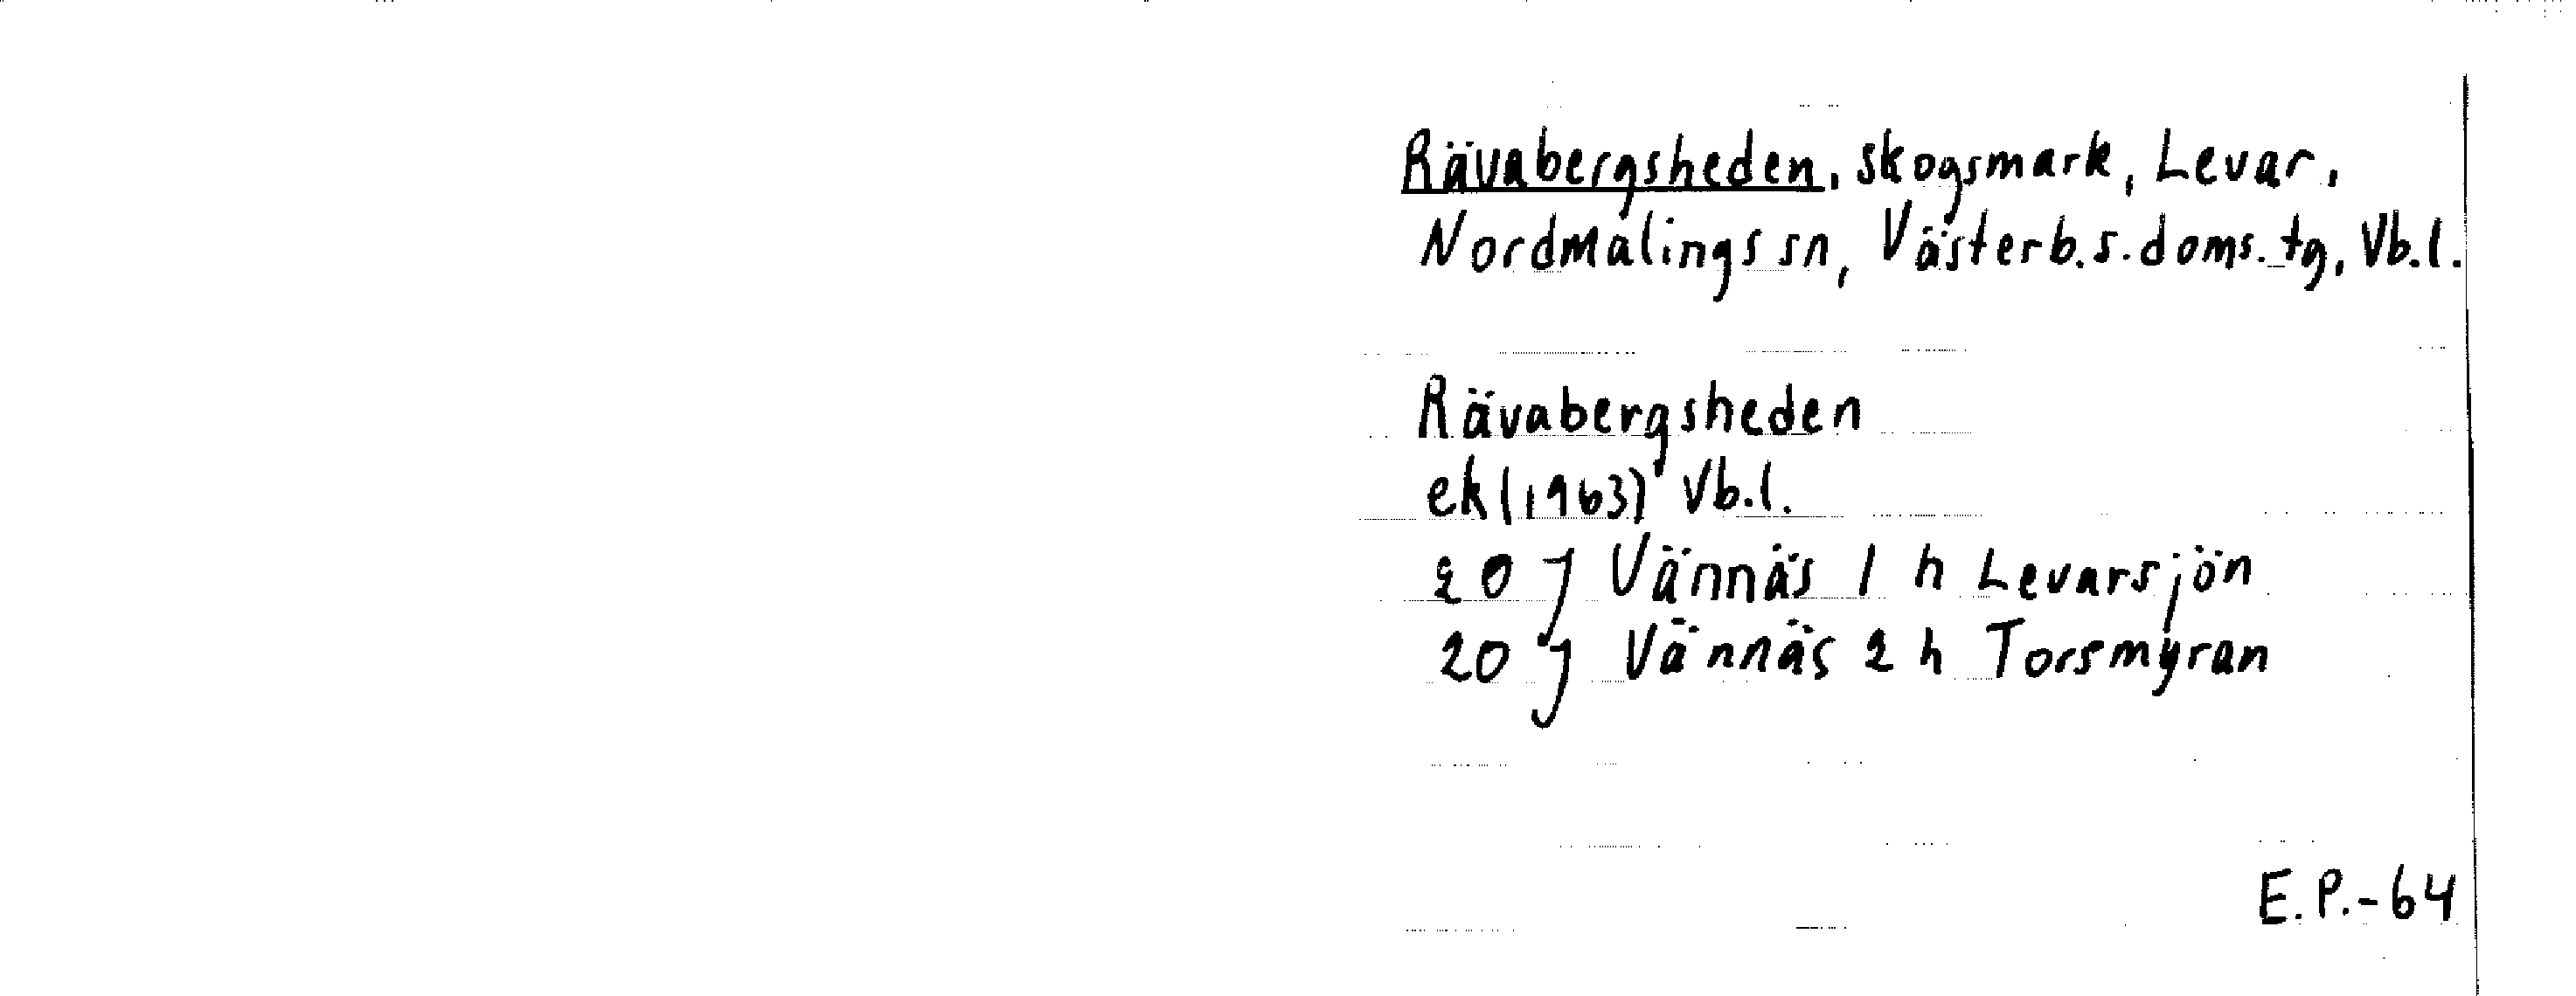 Rävabergsheden, skogsmark, Levar,
Nordmalings sn, Västerb.s.doms.tg, Vb.l.
Rävabergsheden
ek(1963) Vb.l.
20 J Vännäs 1 h Levarsjön
20 J Vännäs 2 h Torsmyran
E.P.-64